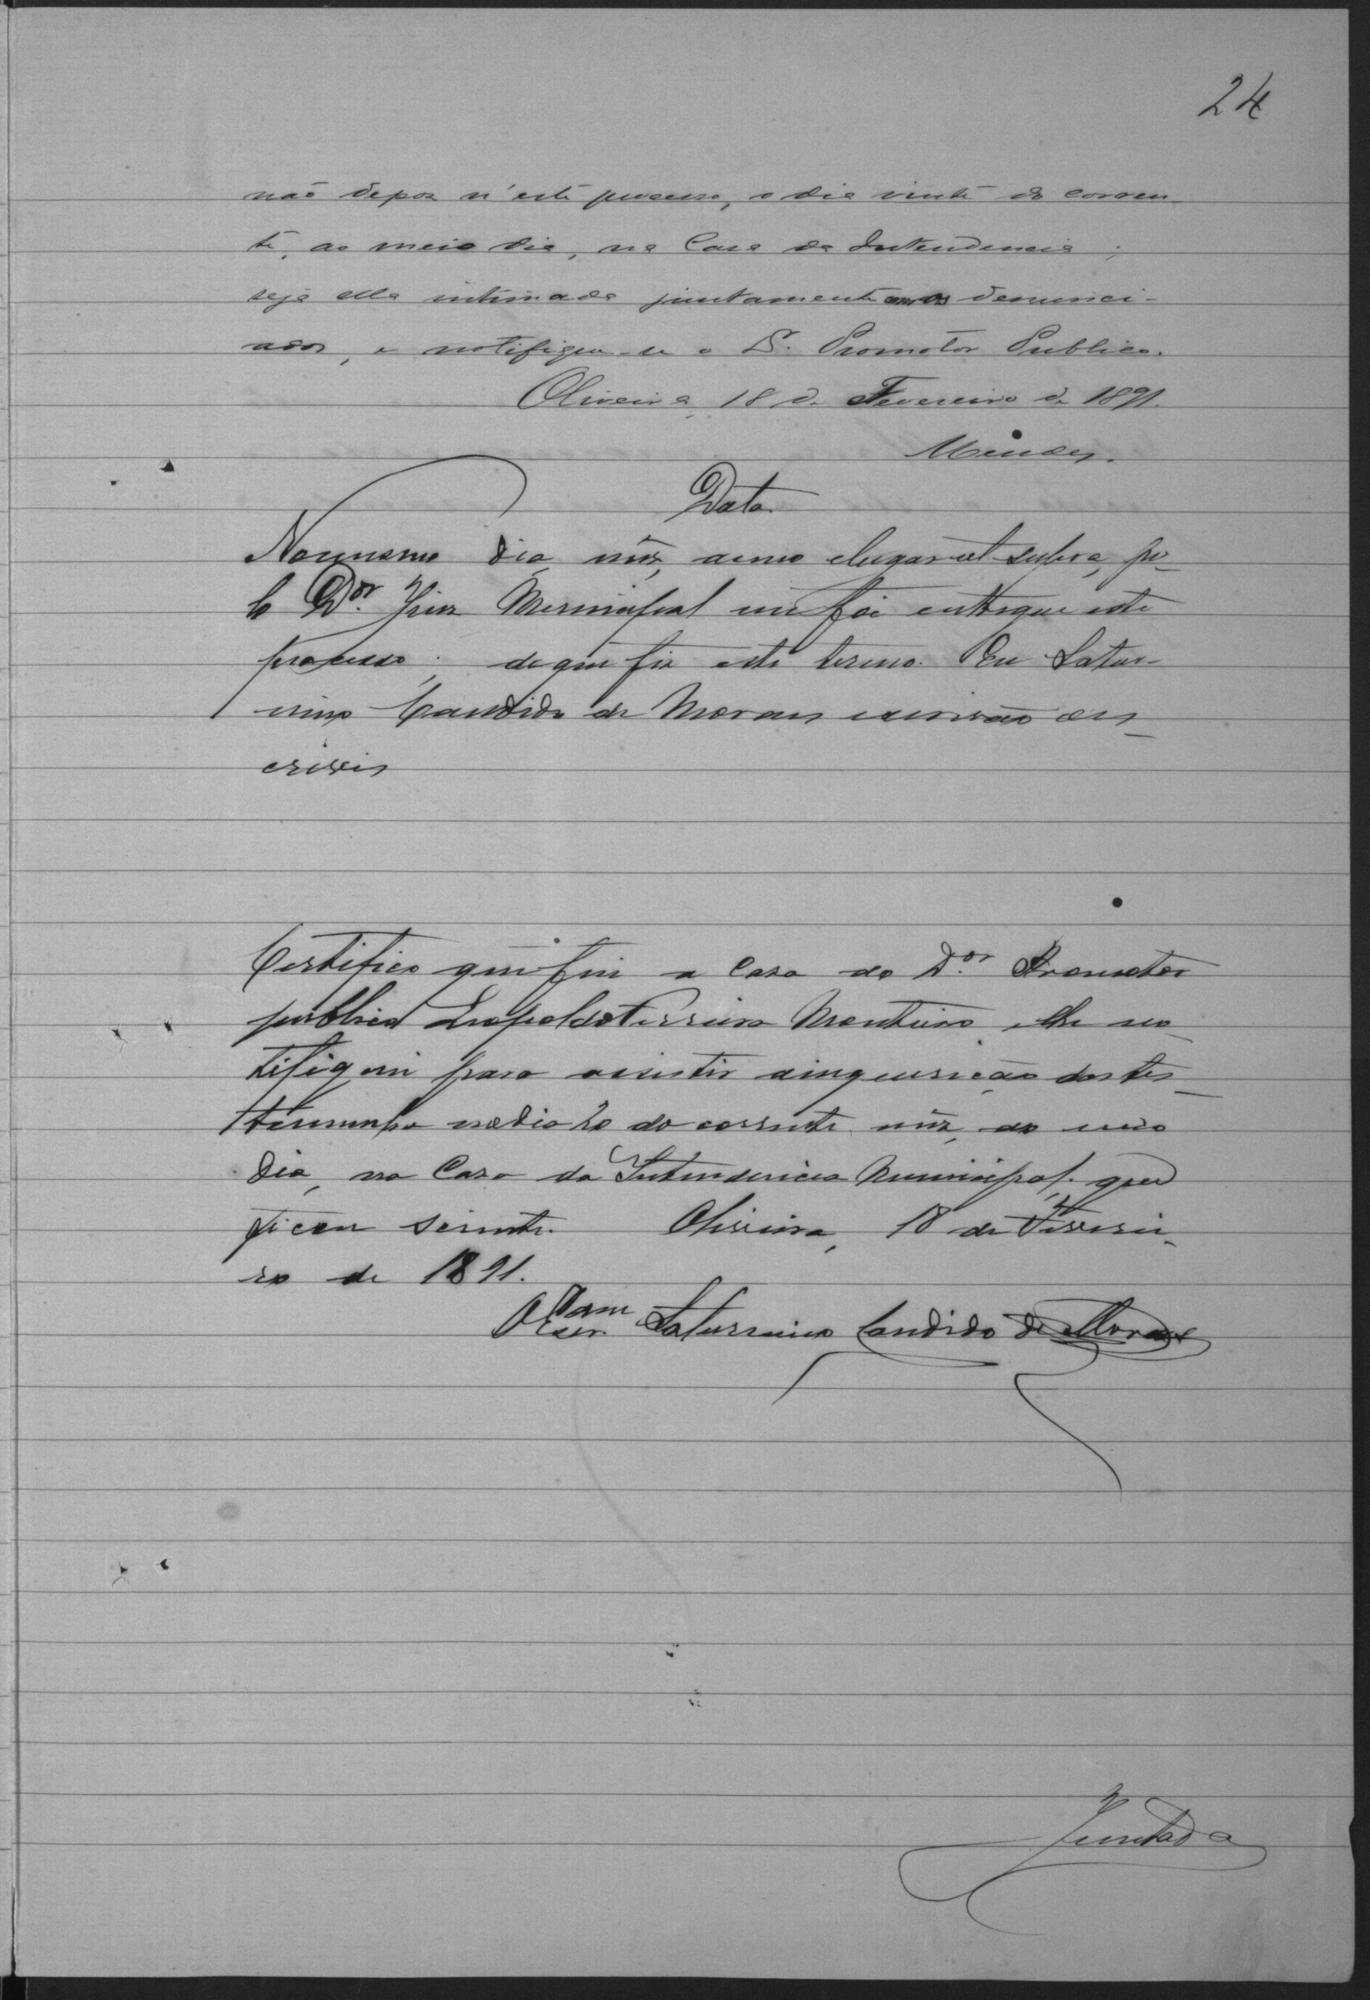 24
não depoz n'este processo, o dia vinte do corren-
te, ao meio dia, na Casa da Intendencia;
seja ella intimada juntamente com os denunci-
ados, e notifique-se o D. Promotor Publico.
Oliveira, 18 de Fevereiro de 1891.
Mendes.
Data.
No mesmo dia, mez, anno e lugar ret supra, pe-
lo Dor. Juiz Municipal me foi entregue este
processo; de que fiz este termo. Eu Satur-
nino Candido de Moraes escrivão es-
crivi
Certifico que fui a Casa do Dor. Promotor
publico Leopoldo Ferreira Monteiro e lhe no-
tifiquei para assistir a inquirição da tes-
temunha no dia 20 do corrente mez, ao meio
dia, na Casa da Intendencia Municipal; que
ficou sciente. Oliveira, 18 de Feverei-
ro de 1891.
O Escr. Saturnino Candido de Moraes
Juntada